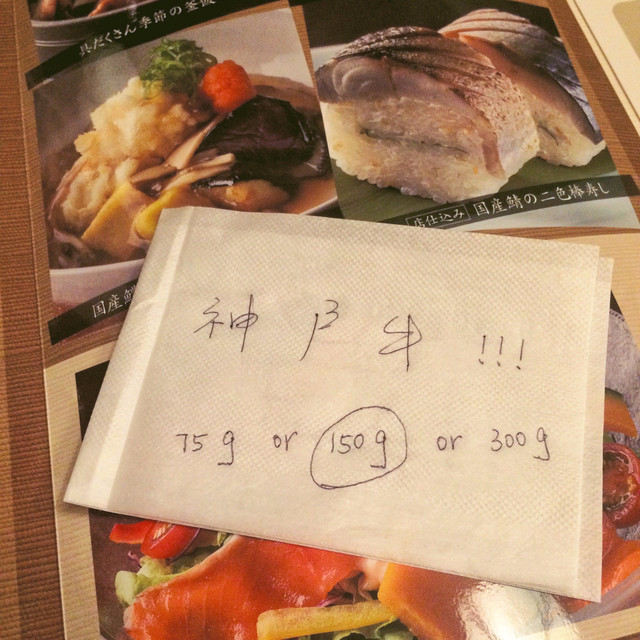 具だくさん季節の釜飯
店仕込み 国産鯖の二色棒寿し
国産
神戸牛!!!
75g or 150g or 300g